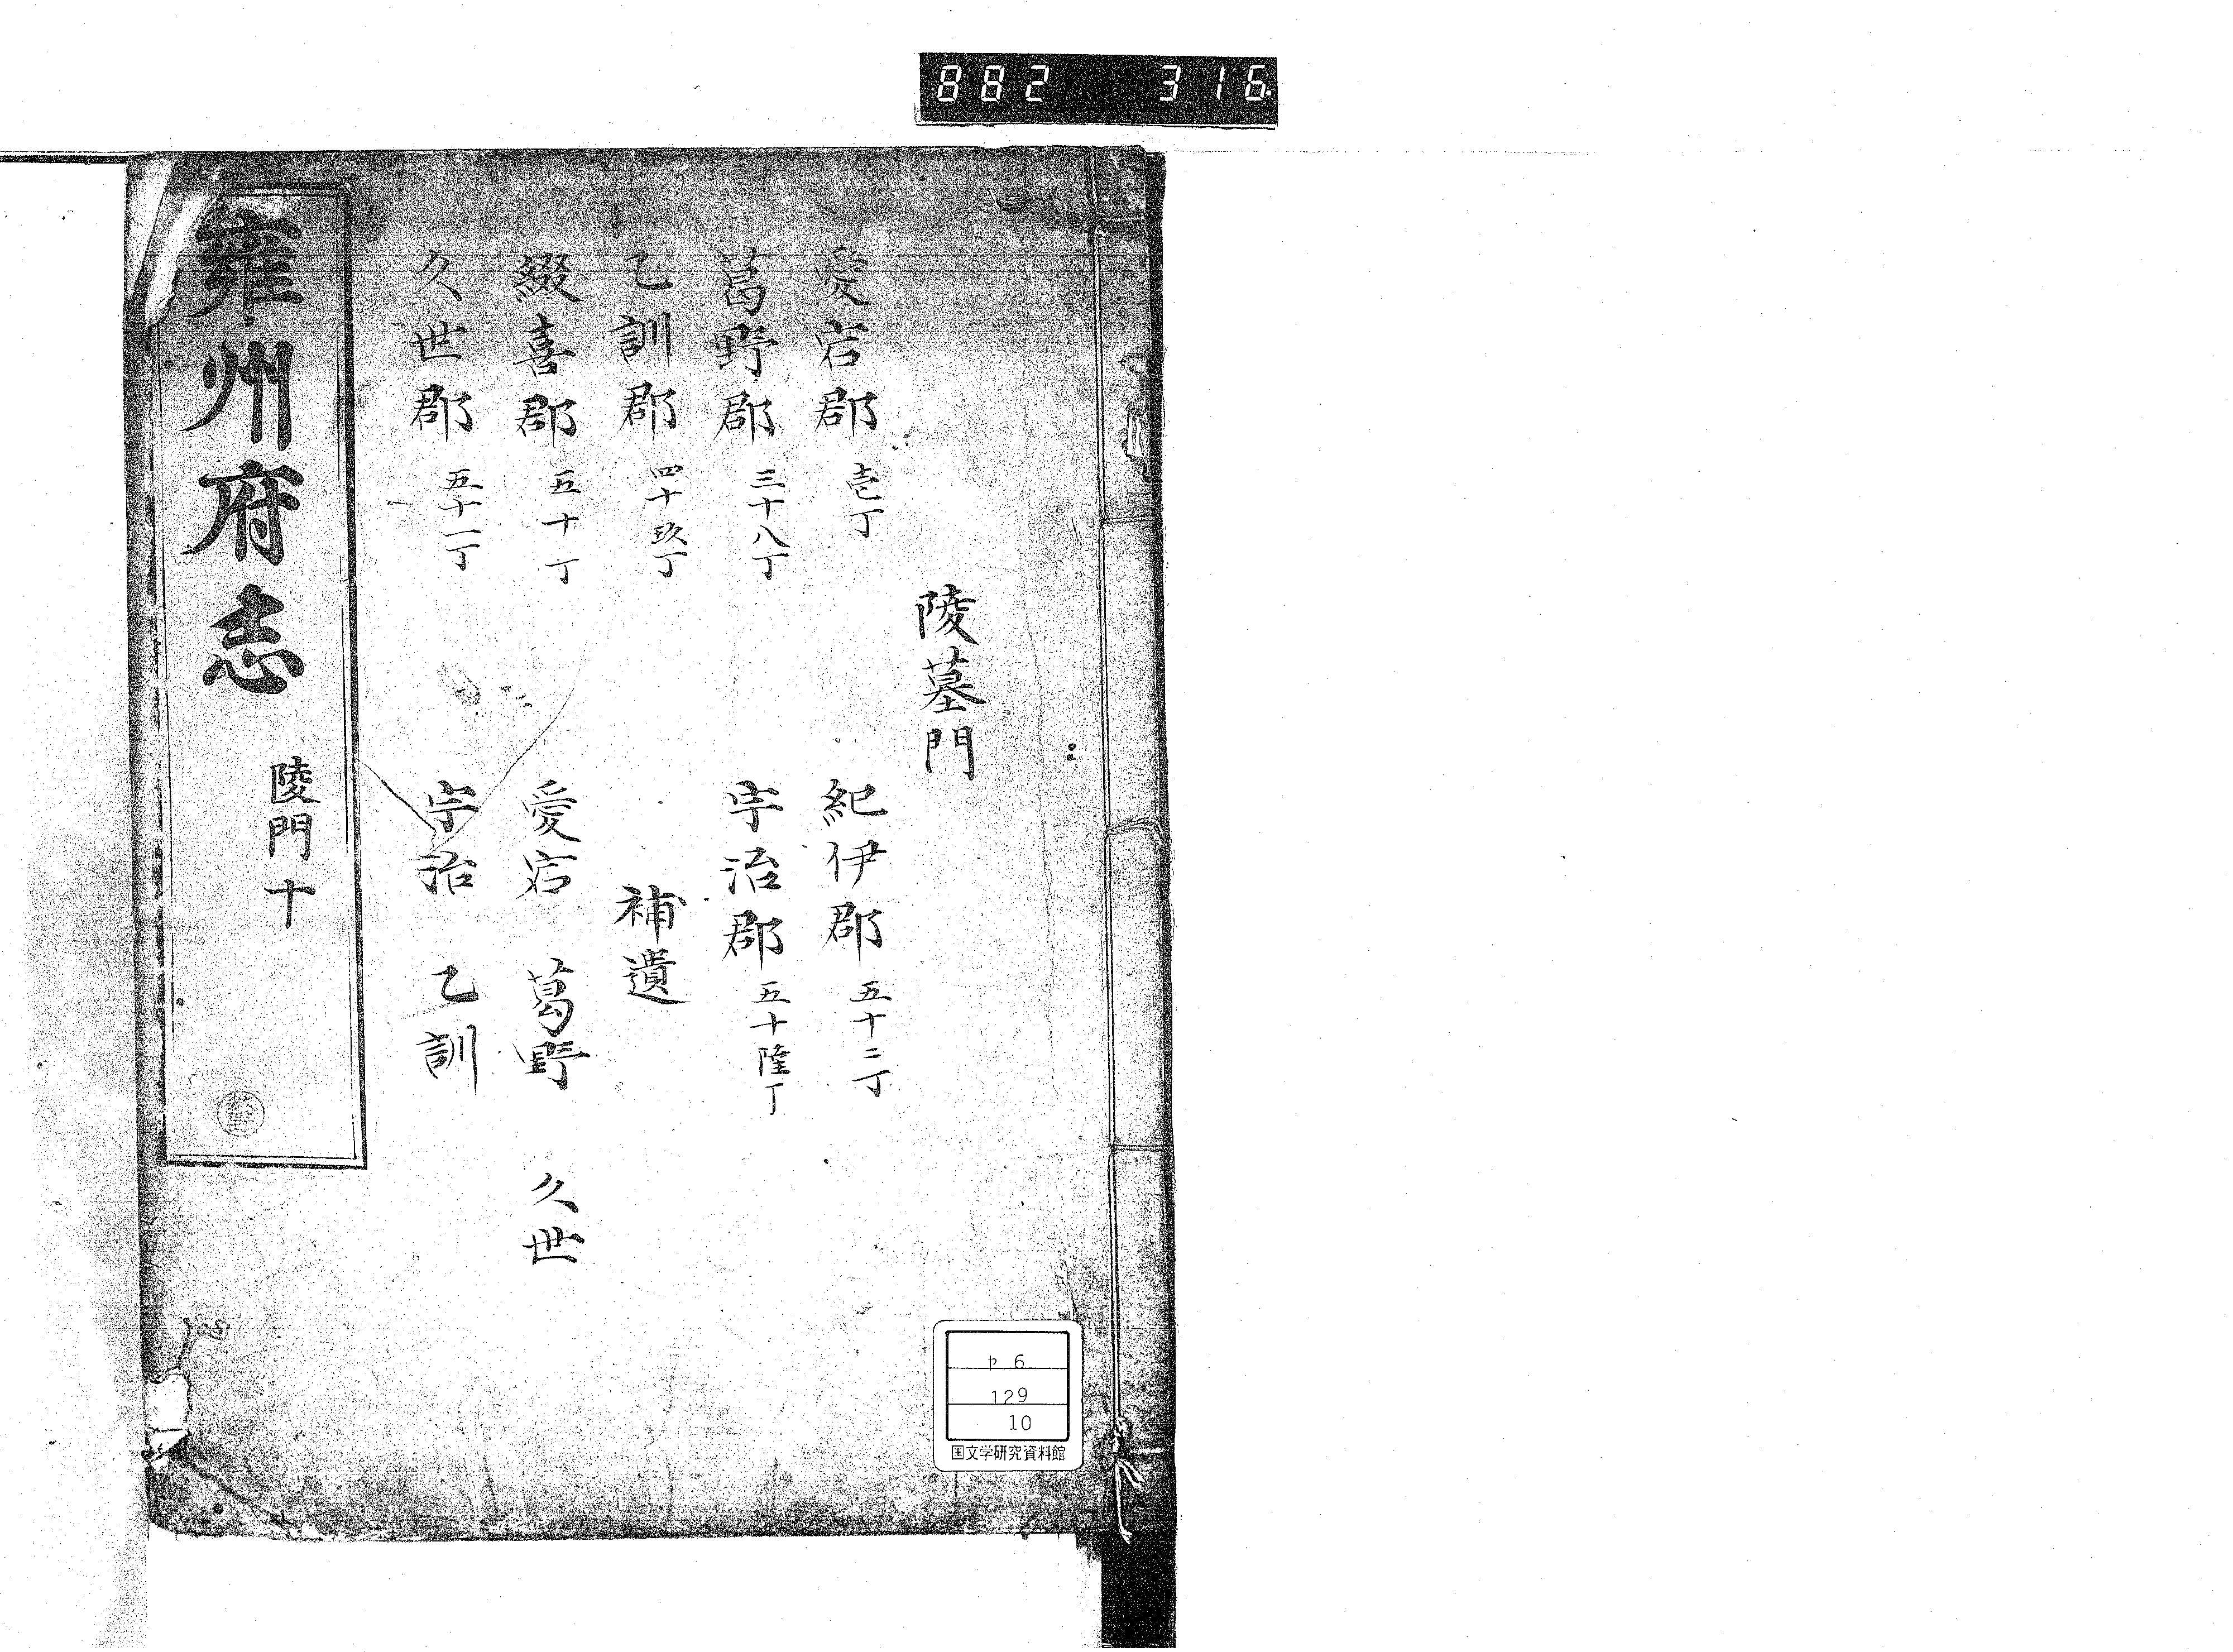 882 316.
陵墓門
愛宕郡 壱丁
紀伊郡 五十二丁
葛野郡 三十八丁
宇治郡 五十隆丁
乙訓郡 四十玖丁
補遺
綴喜郡 五十丁
愛宕 葛野 久世
久世郡 五十一丁
宇治 乙訓
雍州府志 陵門十
ヤ 6
129
10
国文学研究資料館